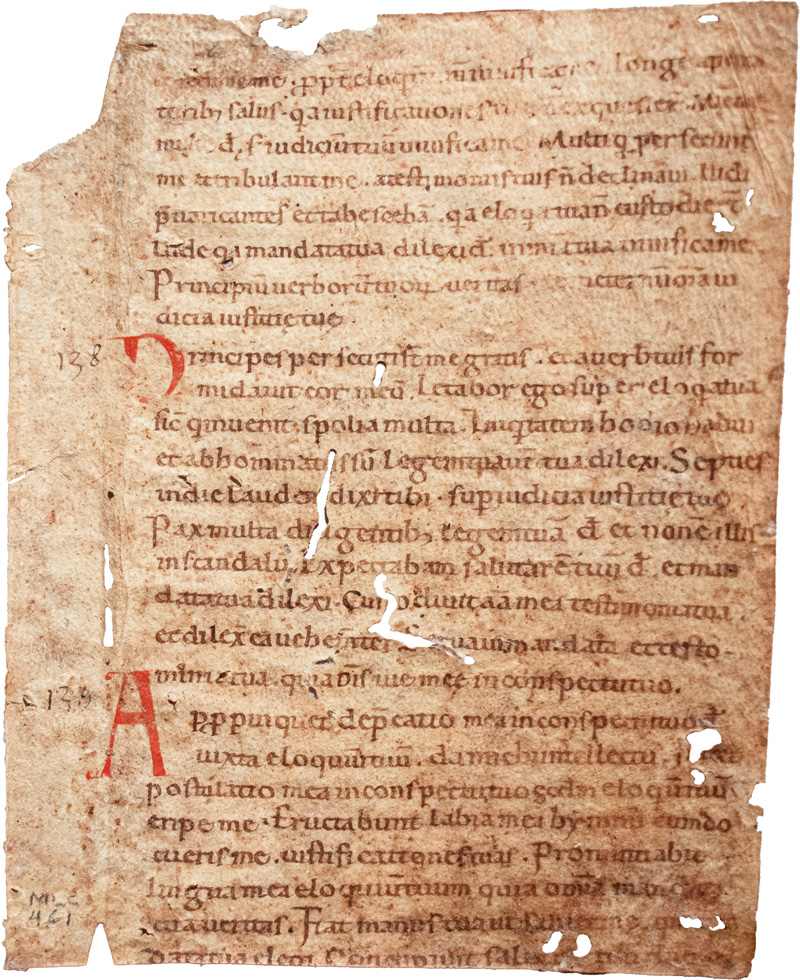 me. ꝓpt eloqm̄ longe
salus. q̄a iustificationes tuas ñ exquesier̄.
đ, s iudiciū tuū uiuificame Multi q̨ per secunt̄
me et tribulant me. a testimoniis tuis ñ declinaui. Uidi
p̄uaricantes et tabescebā. q̄a eloq̄a tua ñ custodier̄t
Uide q̄a mandata tua dilexi đ. in mīa tua uiuifica me.
Principiū uerborū tuoꝝ ueritas
dicia iustitie tue.
138 Principes per secuti st̄ me gratis. et a uerbis tuis for
midauit cor meū. Letabor ego super eloq̄a tua
sic̄ q̄ inuenit spolia multa. Iniq̄tatem hodio habui
et abhominatus sū. Legem aut̄ tuā dilexi. Septies
in die laudem dixi tibi. sup iudicia iustitie tue
Pax multa diligentibꝫ legem tuā đ. et non ē illis
in scandalū. Expectabam salutarē tuū đ. et man
data tua dilexi. Custodiuit a͞i͞a mea testimonia tua
et dilex̄ ea uehem̄ter Seruaui mandata et testi
monia tua. quia om̄s uie mee in conspectu tuo.
139 Appropinquet dep̄catio mea in conspectu tuo đ
iuxta eloquiū tuū. da michi intellectū.
postulatio mea in conspectu tuo scđm eloq̄ūm tuū
eripe me. Eructabunt labia mea hymnū cum do
cueris me. iustificationes tuas. Pronuntiabit
lingua mea eloquiūm tuum quia om̄a mandata
tua ueritas. Fiat manus tua ut saluet me. q̄
data tua elegi. Concupiui salutare
MLC
461